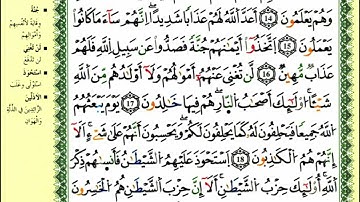 وَهُمْ يَعْلَمُونَ ١٤ أَعَدَّ ٱللَّهُ لَهُمْ عَذَابًا شَدِيدًا ۖ إِنَّهُمْ سَآءَ مَا كَانُوا۟
يَعْمَلُونَ ١٥ ٱتَّخَذُوٓا۟ أَيْمَٰنَهُمْ جُنَّةً فَصَدُّوا۟ عَن سَبِيلِ ٱللَّهِ فَلَهُمْ
عَذَابٌ مُّهِينٌ ١٦ لَّن تُغْنِىَ عَنْهُمْ أَمْوَٰلُهُمْ وَلَآ أَوْلَٰدُهُم مِّنَ ٱللَّهِ
شَيْـًٔا ۚ أُو۟لَٰٓئِكَ أَصْحَٰبُ ٱلنَّارِ ۖ هُمْ فِيهَا خَٰلِدُونَ ١٧ يَوْمَ يَبْعَثُهُمُ
ٱللَّهُ جَمِيعًا فَيَحْلِفُونَ لَهُۥ كَمَا يَحْلِفُونَ لَكُمْ ۖ وَيَحْسَبُونَ أَنَّهُمْ عَلَىٰ شَىْءٍ ۚ أَلَآ
إِنَّهُمْ هُمُ ٱلْكَٰذِبُونَ ١٨ ٱسْتَحْوَذَ عَلَيْهِمُ ٱلشَّيْطَٰنُ فَأَنسَىٰهُمْ ذِكْرَ
ٱللَّهِ ۚ أُو۟لَٰٓئِكَ حِزْبُ ٱلشَّيْطَٰنِ ۚ أَلَآ إِنَّ حِزْبَ ٱلشَّيْطَٰنِ هُمُ ٱلْخَٰسِرُونَ
جُنّة
وقاية لأنفسهم
وأموالهم
لن تُغني
لن تدفع
استحوذ
استولى وغلب
الأذلّين
الزائدين في الذّلّة
والهوان